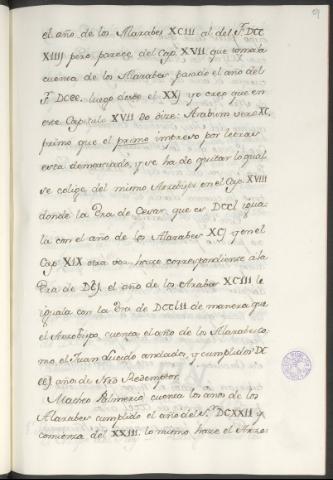 el año de los Alarabes XCIII al del Sr. DCC
XIIII pero parece del Cap. XVII que tomara
cuenta de los Alarabes parado el año del
Sr. DCCC. luego desde el XXJ yo creo que en
este Capitulo XVII do dize: Arabum vero XC.
primo que el primo impreso por letras
esta demarcado, y se ha de quitar lo qual
se colige del mismo Arzobispo en el Cap. XVIII
donde la Era de Cesar, que es DCCL igua
la con el año de los Alarabes XCJ y en el
Cap XIX otra vez hace correspondiente a la
Era de el año de los Arabes XCIII le
iguala con la Era de DCCLII de manera que
el Arzobispo cuenta el año de los Alarabes co
mo, el Juan dicido andados, y cumplidos DC
CCJ año de Nro Redemptor.
Matheo Palmerio cuenta los anos de los
Alarabes cumplido el año del Sr. DCXXII y
comienza del XXIII. lo mismo hace el Arzo